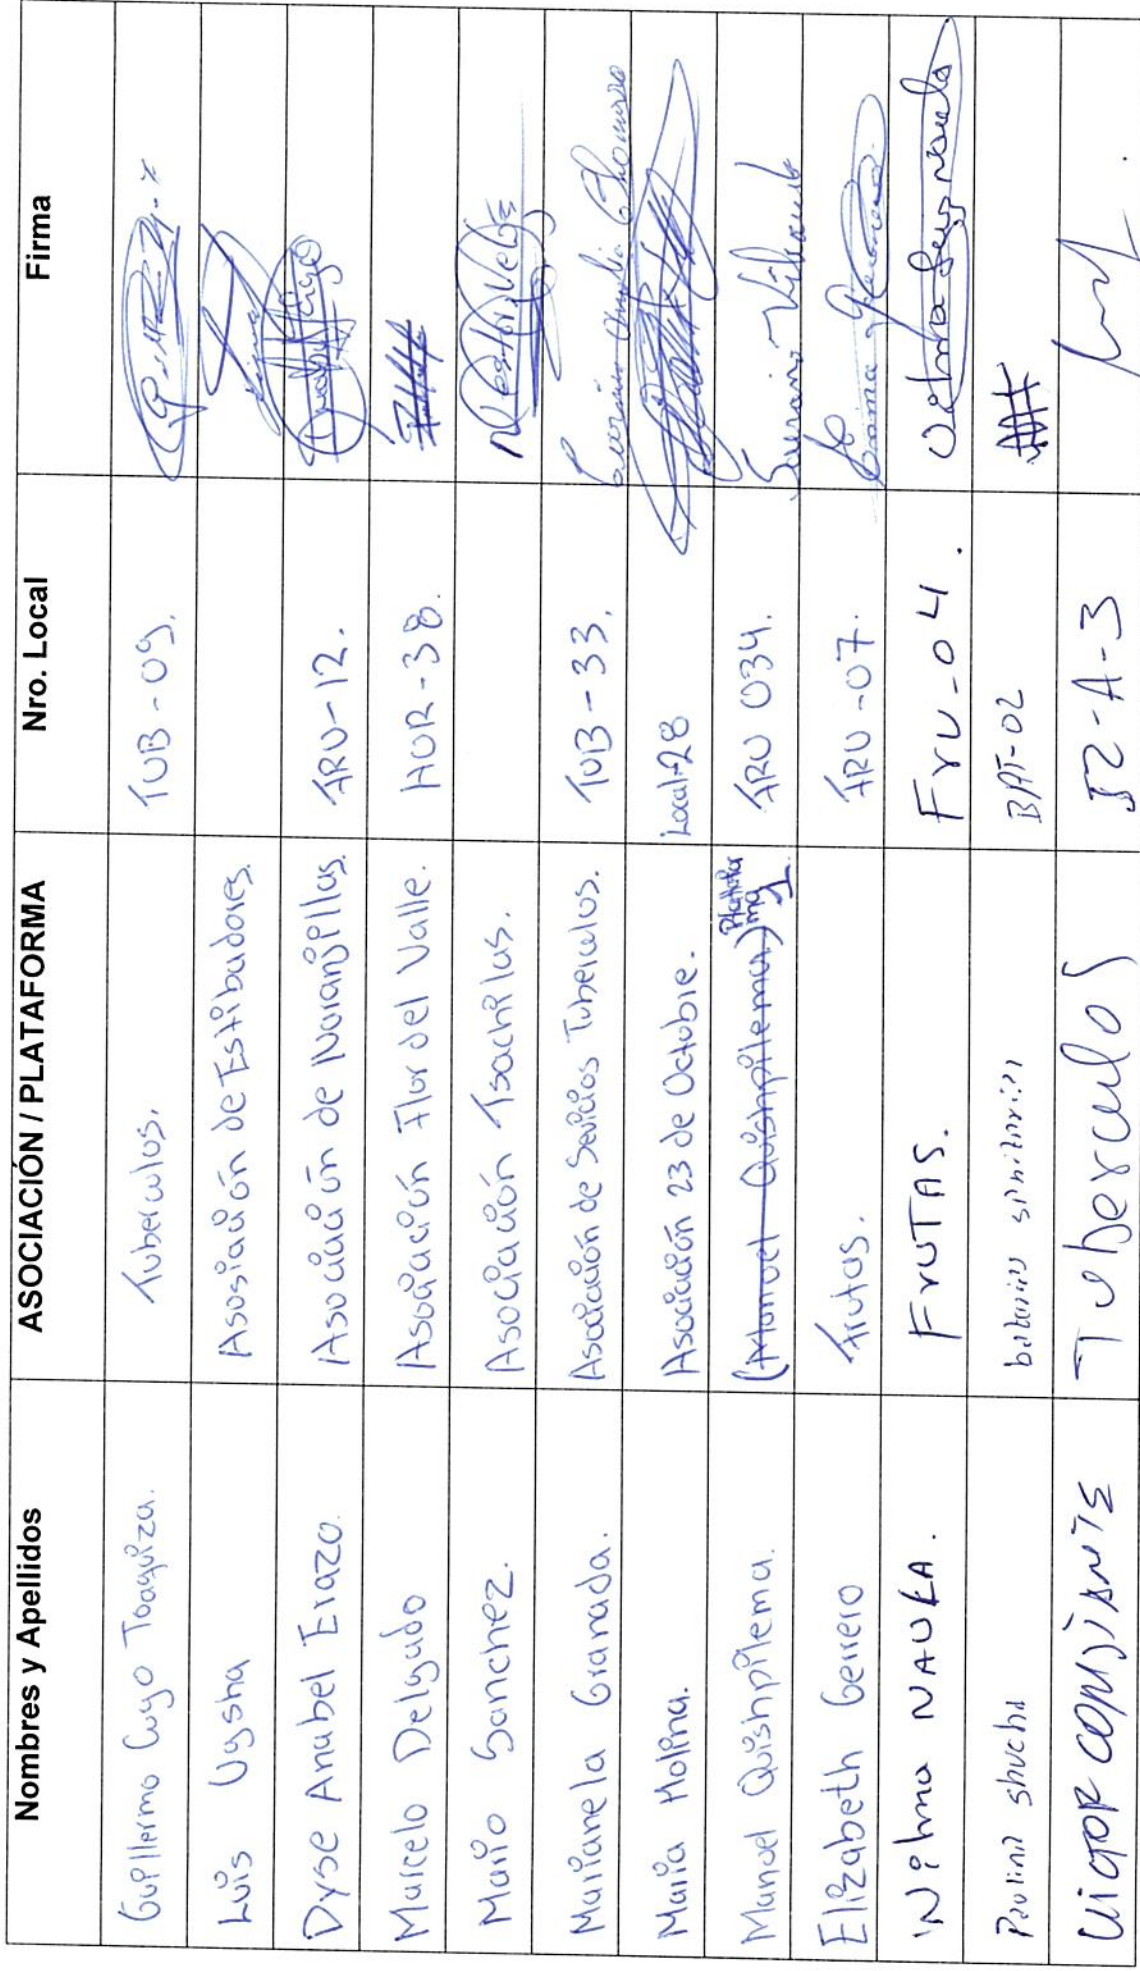 Nombres y Apellidos ASOCIACIÓN / PLATAFORMA Nro. Local Firma
Guillermo Cuyo Toaquiza. Tuberculos. TUB-09.
Luis Uysha Asosiación de Estibadores.
Dyse Anabel Erazo. Asociación de Naranjillas. FRU-12.
Marcelo Delgado Asociación Flor del Valle. HOR-38.
Mario Sanchez. Asociación Tsachilas.
Marianela Granada. Asociación de Servicios Tuberculos. TUB-33.
Maria Molina. Asociación 23 de Octubre. Local-28
Manuel Quishpilema. (Manuel Quishpilema) FRU 034.
Elizabeth Gerrero Frutas. FRU-07.
Wilma NAULA. FruTAS. Fru-04.
Paulina shucha baterias sanitarias BAT-02
Tuberculos JZ-A-3